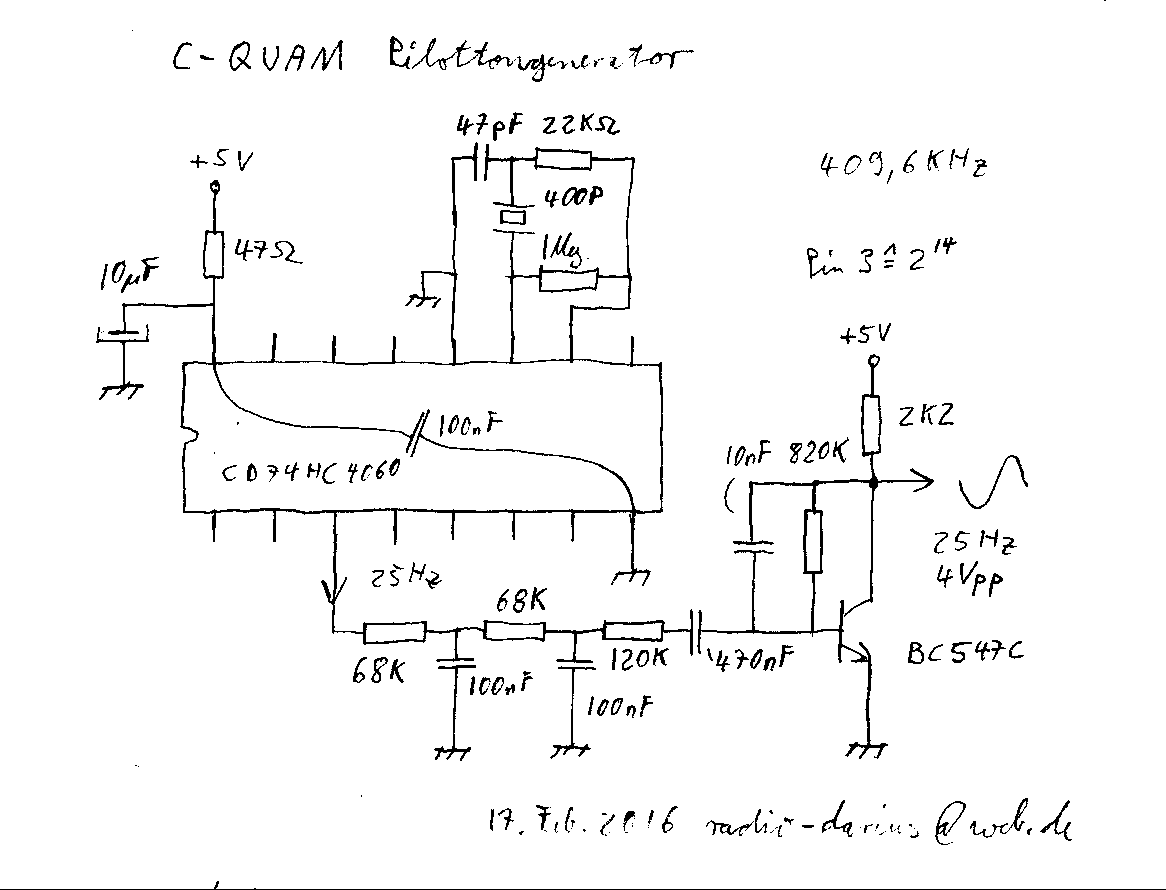 C-QUAM Pilottongenerator
47pF 22KΩ
+5V
409,6KHz
400P
47Ω
1Meg.
10µF
Pin 3 ≙ 2^14
+5V
2K2
100nF
CD74HC4060
10nF 820K
25Hz
4Vpp
25Hz
68K
68K
100nF
100nF
120K
470nF
BC547C
17. Feb. 2016 radio-darius@web.de